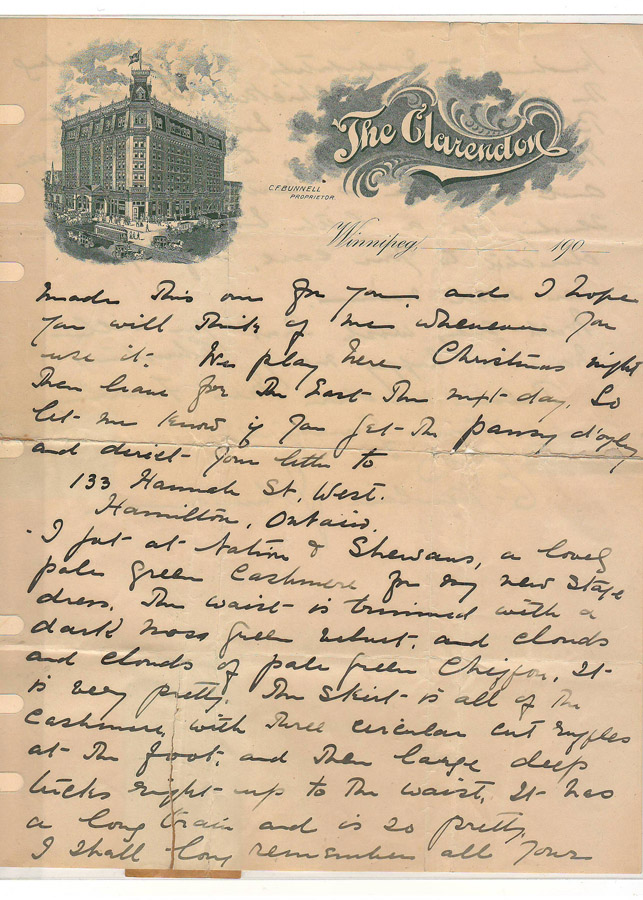 The Clarendon
C.F. BUNNELL
PROPRIETOR.
Winnipeg, 190
made this one for you and I hope
you will think of me whenever you
use it. We play here Christmas night
then leave for the East the next day. So
let me know if you get the pansy d'oyley
and direct your letter to
133 Hannah St, West.
Hamilton, Ontario.
I got at Nation & Shewans, a lovely
pale green Cashmere for my new stage
dress. The waist is trimmed with a
dark moss green velvet, and clouds
and clouds of pale green Chiffon, It
is very pretty. The skirt is all of the
Cashmere, with three circular cut ruffles
at the foot, and then large deep
tucks right up to the waist. It has
a long train and is so pretty.
I shall long remember all your